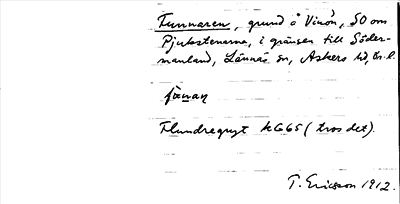 Tunnaren, grund å Vinön, SO om
Pjukstenarna, i gränsen till Söder-
manland, Lännäs sn, Askers hd, Ör. l.
Flundregryt kG65 (tros det).
T. Ericsson 1912.